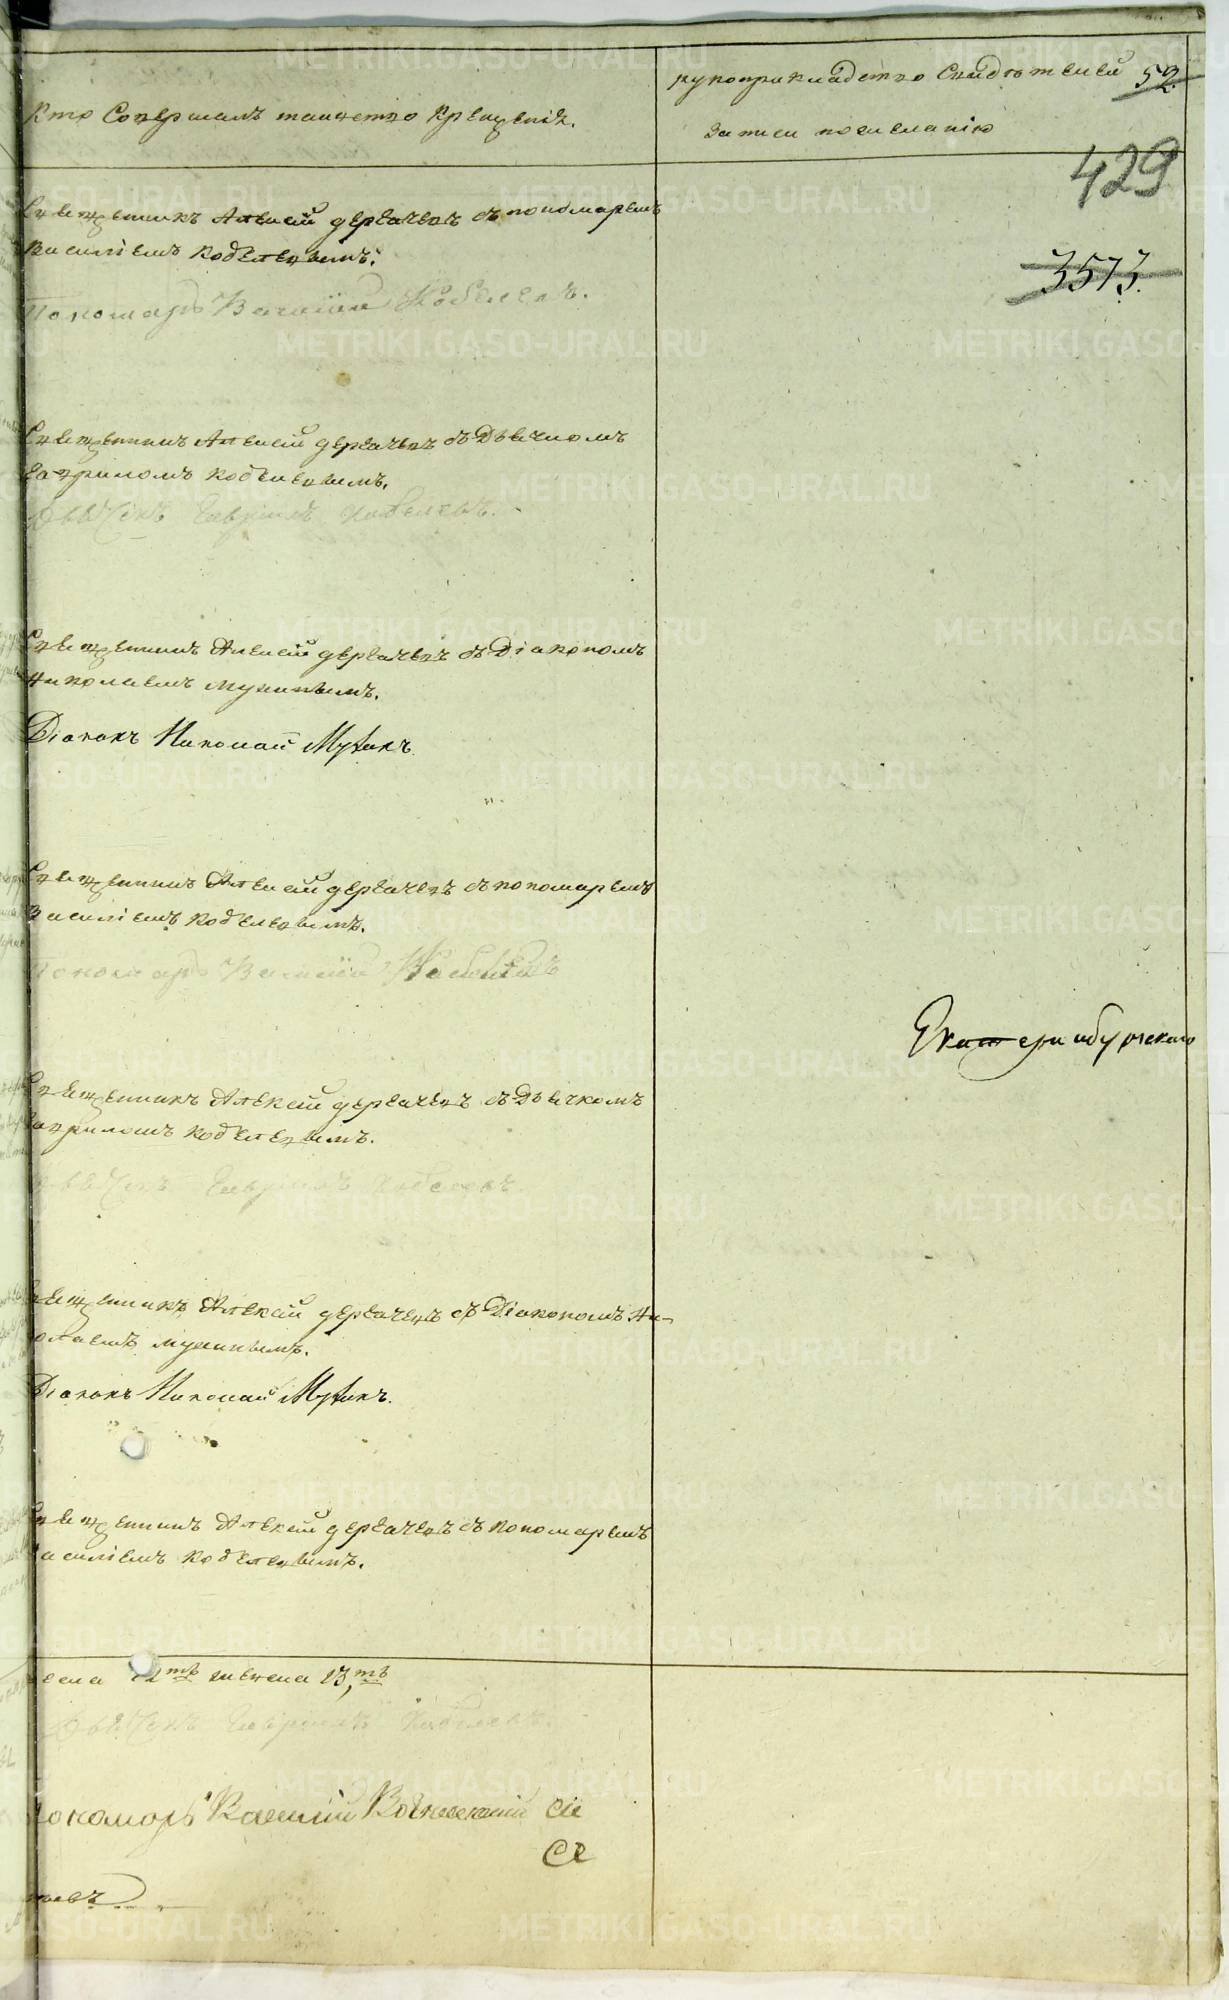 Кто Совершалъ таинство Крещенія.
рукоприкладство Свидѣтелей
записи по желанію
52
429
3573.
Священникъ Алексѣй дергачевъ съ пономаремъ
Василіемъ Кобелевымъ.
Пономарь Василій Кобелевъ.
Священникъ Алексѣй дергачевъ съ Дьячкомъ
Гавриломъ Кобелевымъ.
Дьячекъ Гаврилъ Кобелевъ.
Священникъ Алексѣй дергачевъ съ Діакономъ
Николаемъ Мухинымъ.
Діаконъ Николай Мухинъ.
Священникъ Алексѣй дергачевъ съ пономаремъ
Василіемъ Кобелевымъ.
Пономарь Василій Кобелевъ
Екатеринбургскаго
Священникъ Алексѣй дергачевъ съ Дьячкомъ
Гавриломъ Кобелевымъ.
Дьячекъ Гаврилъ Кобелевъ.
Священникъ Алексѣй дергачевъ съ Діакономъ Ни-
колаемъ Мухинымъ.
Діаконъ Николай Мухинъ.
Священникъ Алексѣй дергачевъ съ пономаремъ
Василіемъ Кобелевымъ.
пола 12ть женска 13,ть
Дьячекъ Гаврилъ Кобелевъ.
Пономарь Василій